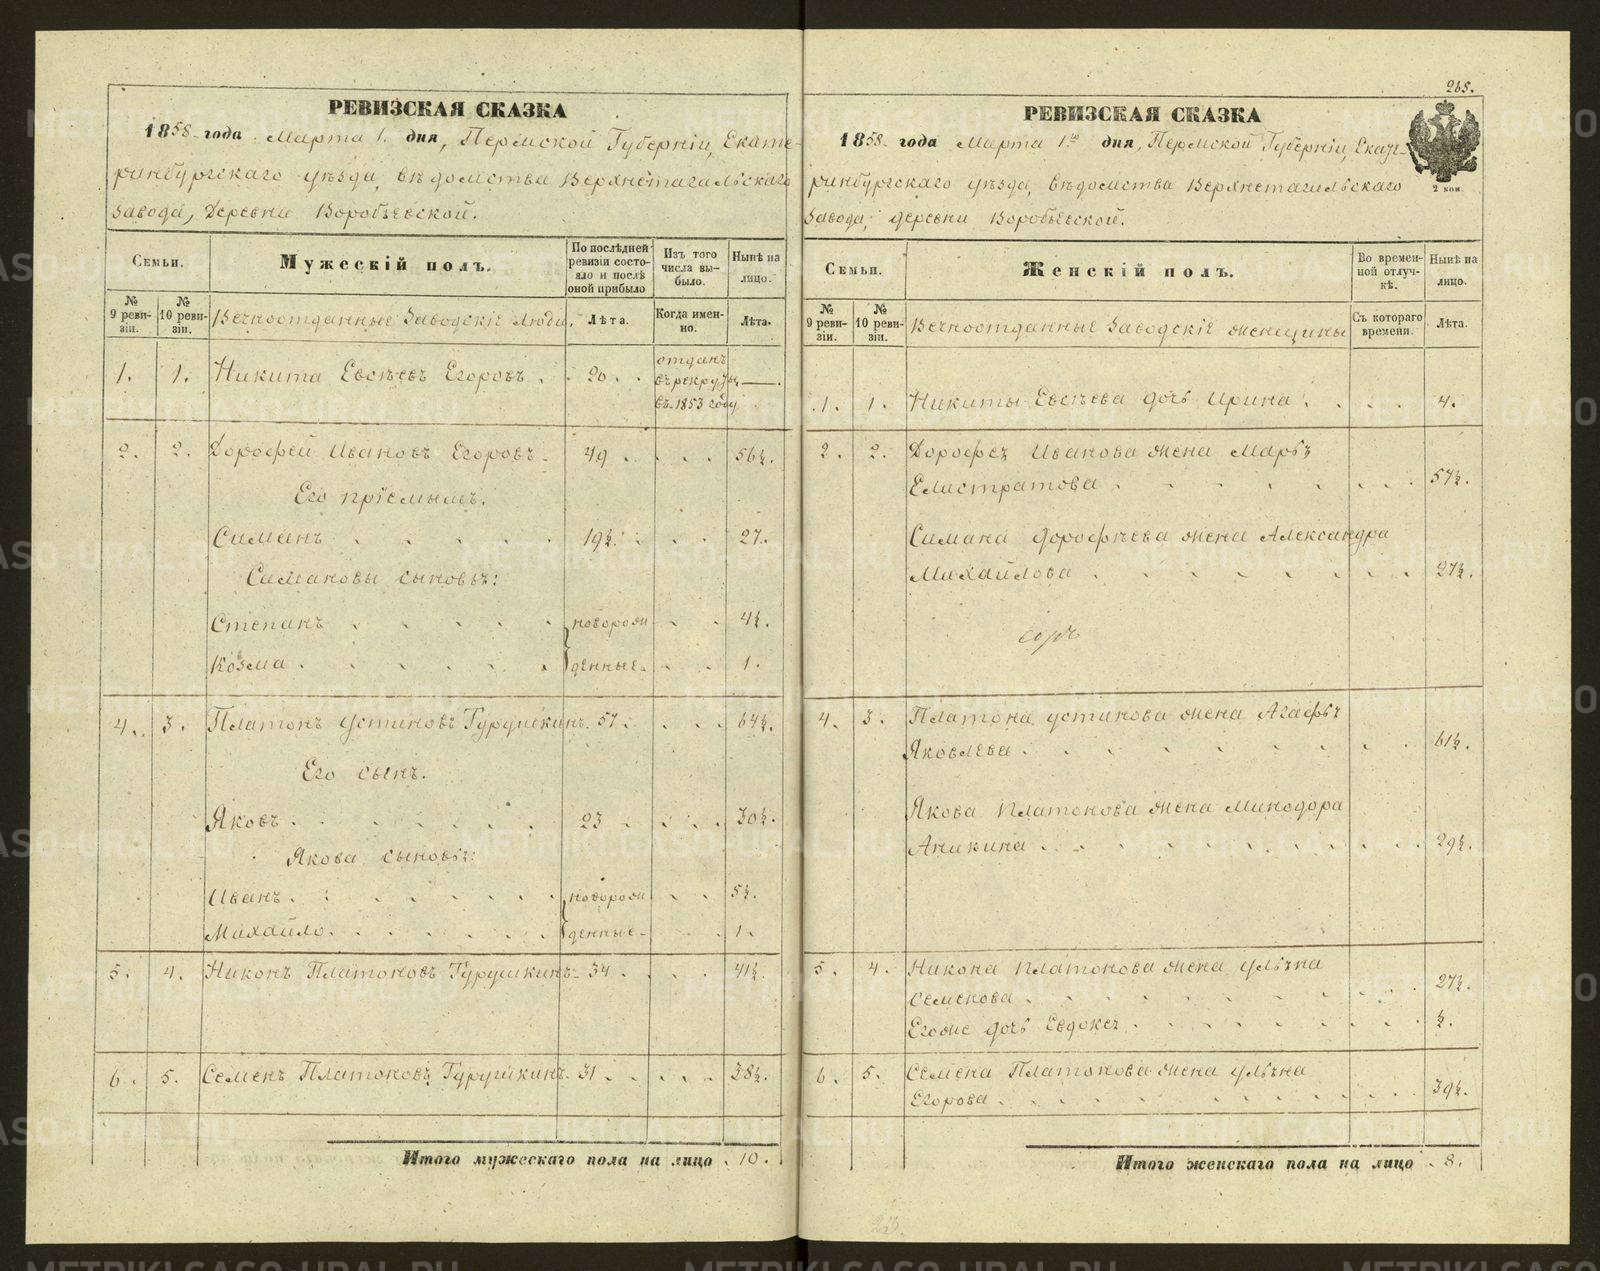 РЕВИЗСКАЯ СКАЗКА
1858 года Марта 1. дня, Пермской Губерніи, Екате-
ринбургскаго уѣзда, вѣдомства Верхнетагильскаго
завода, Деревни Воробьевской.
Семьи.
Мужескій полъ.
По послѣдней ревизіи состояло и послѣ оной прибыло
Изъ того числа выбыло.
Нынѣ на лицо.
№ 9 ревизіи.
№ 10 ревизіи.
Вечноотданные Заводскіе люди.
Лѣта.
Когда именно.
Лѣта.
1. 1. Никита Евсѣевъ Егоровъ . 20 . отданъ въ рекруты въ 1853 году —
2. 2. Дорофей Ивановъ Егоровъ 49 . . . . 56½.
Его пріемышъ.
Симанъ . . . . . 19½. . . 27.
Симановы сыновья:
Степанъ . . . . . новорож- . . 4½.
Козма . . . . . . денные . . 1.
4. 3. Платонъ Устиновъ Гурушкинъ. 57. . . . 64½.
Его сынъ.
Яковъ . . . . . . 23 . . . . 30½.
Якова сыновья:
Иванъ . . . . . . новорож- . . 5½.
Михайло . . . . . . денные . . 1.
5. 4. Никонъ Платоновъ Гурушкинъ 34 . . . . 41½.
6. 5. Семенъ Платоновъ Гурушкинъ 31 . . . . 38½.
Итого мужескаго пола на лицо . 10.
265.
РЕВИЗСКАЯ СКАЗКА
1858 года Марта 1го дня, Пермской Губерніи, Екате-
ринбургскаго уѣзда, вѣдомства Верхнетагильскаго
Завода, деревни Воробьевской.
2 коп.
Семьи.
Женскій полъ.
Во временной отлучкѣ.
Нынѣ на лицо.
№ 9 ревизіи.
№ 10 ревизіи.
Вечноотданные Заводскіе женщины
Съ котораго времени.
Лѣта.
1. 1. Никиты Евсѣева дочь Ирина . . . . 4.
2. 2. Дорофея Иванова жена Марья
Елистратова . . . . . . . 57½.
Симана Дорофѣева жена Александра
Михайлова . . . . . . . 27½.
4. 3. Платона Устинова жена Агафья
Яковлева . . . . . . . . 61½.
Якова Платонова жена Минодора
Аникина . . . . . . . . 29½.
5. 4. Никона Платонова жена Ульяна
Семенова . . . . . . . . 27½.
Егоже дочь Евдокея . . . . . . ½.
6. 5. Семена Платонова жена Ульяна
Егорова . . . . . . . . 39½.
Итого женскаго пола на лицо . 8.
23.
METRIKI.GASO-URAL.RU